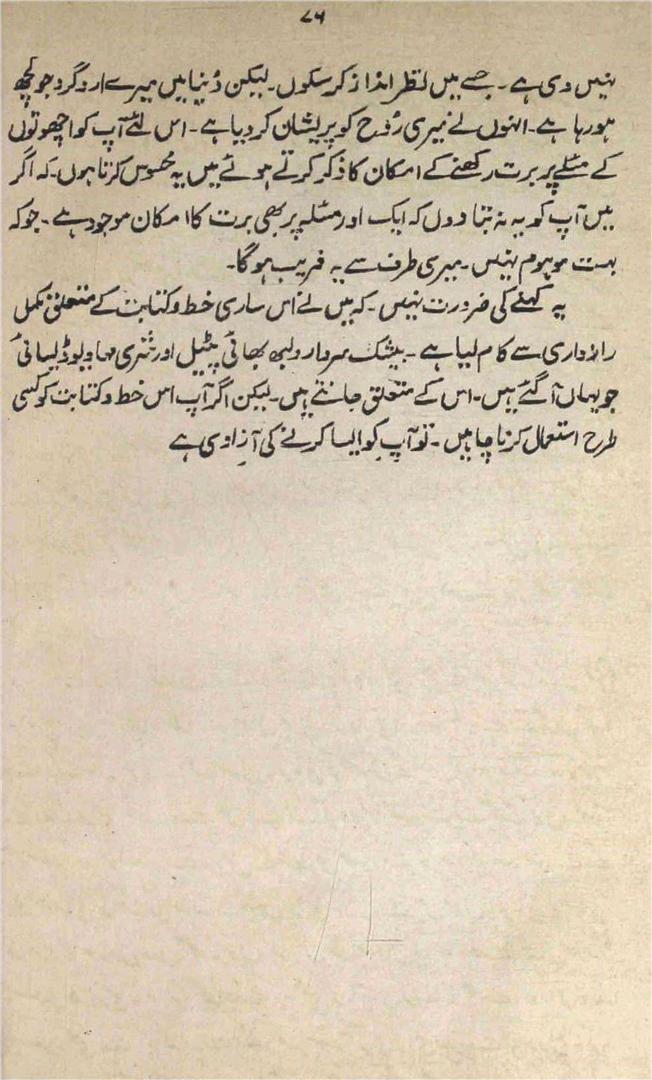 ۷۶
نہیں دی ہے۔ جسے میں نظر انداز کر سکوں۔ لیکن دُنیا میں میرے ارد گرد جو کچھ
ہو رہا ہے۔ انہوں نے میری رُوح کو پریشان کر دیا ہے۔ اس لئے آپ کو اچھوتوں
کے مسئلے پر برت رکھنے کے امکان کا ذکر کرتے ہوئے میں یہ محسوس کرتا ہوں۔ کہ اگر
میں آپ کو یہ نہ بتا دوں کہ ایک اور مسئلہ پر بھی برت کا امکان موجود ہے۔ جو کہ
بہت موہوم نہیں۔ میری طرف سے یہ فریب ہو گا۔
یہ کہنے کی ضرورت نہیں۔ کہ میں نے اس ساری خط و کتابت کے متعلق مکمل
رازداری سے کام لیا ہے۔ بیشک سردار ولبھ بھائی پٹیل اور شری مہادیو ڈیسائی
جو یہاں آ گئے ہیں۔ اس کے متعلق جانتے ہیں۔ لیکن اگر آپ اس خط و کتابت کو کسی
طرح استعمال کرنا چاہیں۔ تو آپ کو ایسا کرنے کی آزادی ہے